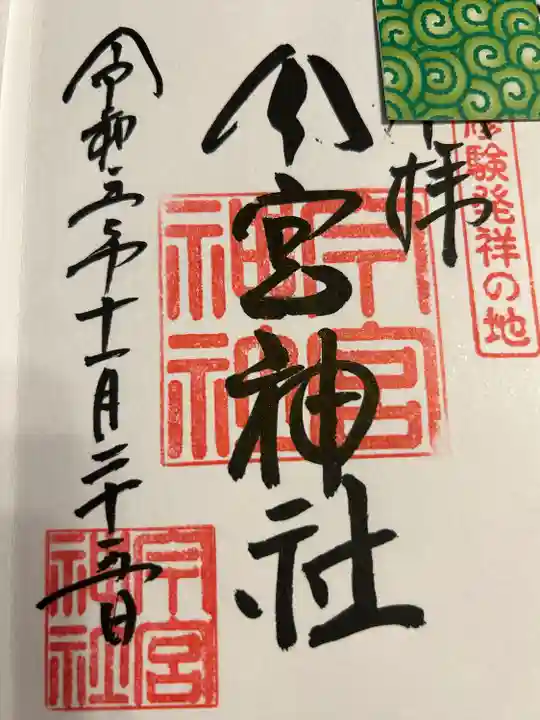 修験発祥の地
拝
今宮神社
今宮神社
令和五年十一月二十五日
今宮神社